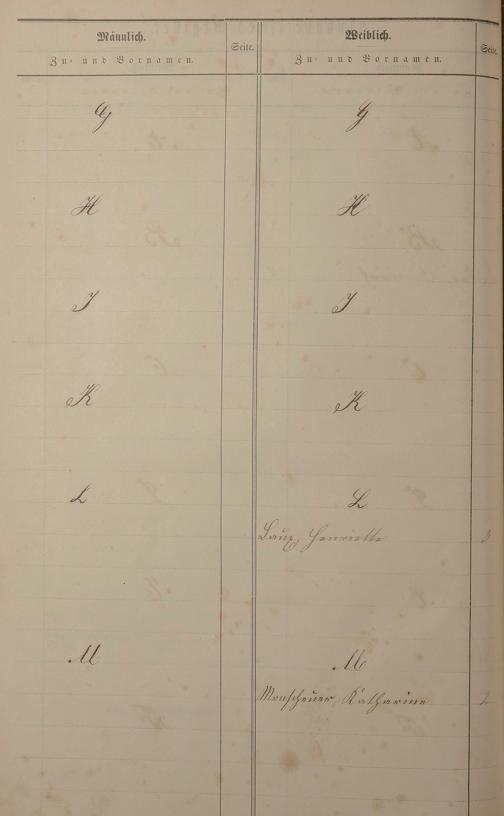 Männlich.
Zu- und Vornamen.
Seite.
Weiblich.
Zu- und Vornamen.
Seite.
G
G
H
H
I
I
K
K
L
L
Henriette 3
M
M
Monscheuer, Katharine 2